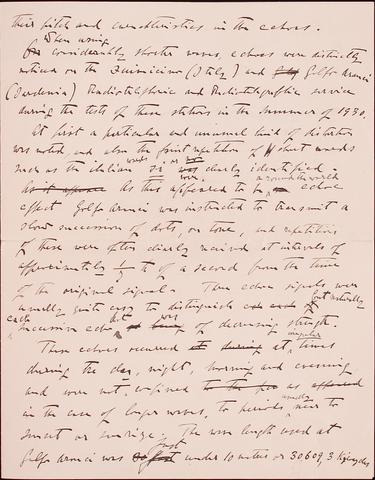 their pitch and characteristics in the echoes.
When using
considerably shorter waves, echoes were distinctly
noticed on the Fiumicino (Italy) and Golfo Aranci
(Sardinia) Radiotelephonic and Radiotelegraphic service
during the tests of these stations in the summer of 1930.
At first a particular and unusual kind of distortion
was noted and also the faint repetition of short words
such as the italian words si or no were clearly identified.
As this appeared to be a round the world echo
effect Golfo Aranci was instructed to transmit a
slow succession of dots, on tone, and repetitions
of these were often clearly received at intervals of
approximately th of a second from the time
of the original signal. These echo signals were
usually quite easy to distinguish but naturally
each successive echo was of decreasing strength.
These echoes occurred at irregular times
during the day, night, morning and evening
and were not confined as
in the case of longer waves, to periods usually near to
sunset or sunrise. The wave length used at
Golfo Aranci was just under 10 metres or 30609,3 kilocycles